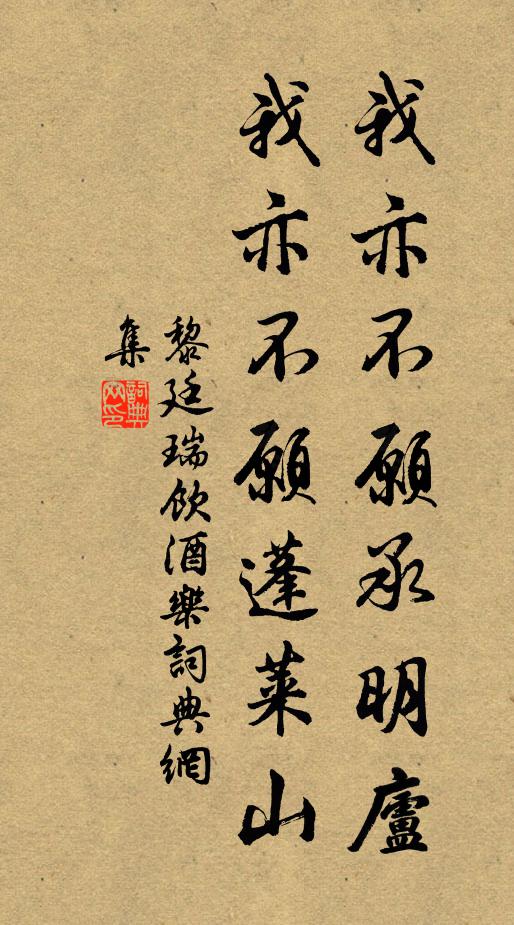 我亦不願承明廬
我亦不願蓬萊山
黎廷瑞飲酒樂詞典網
集
詞典網印